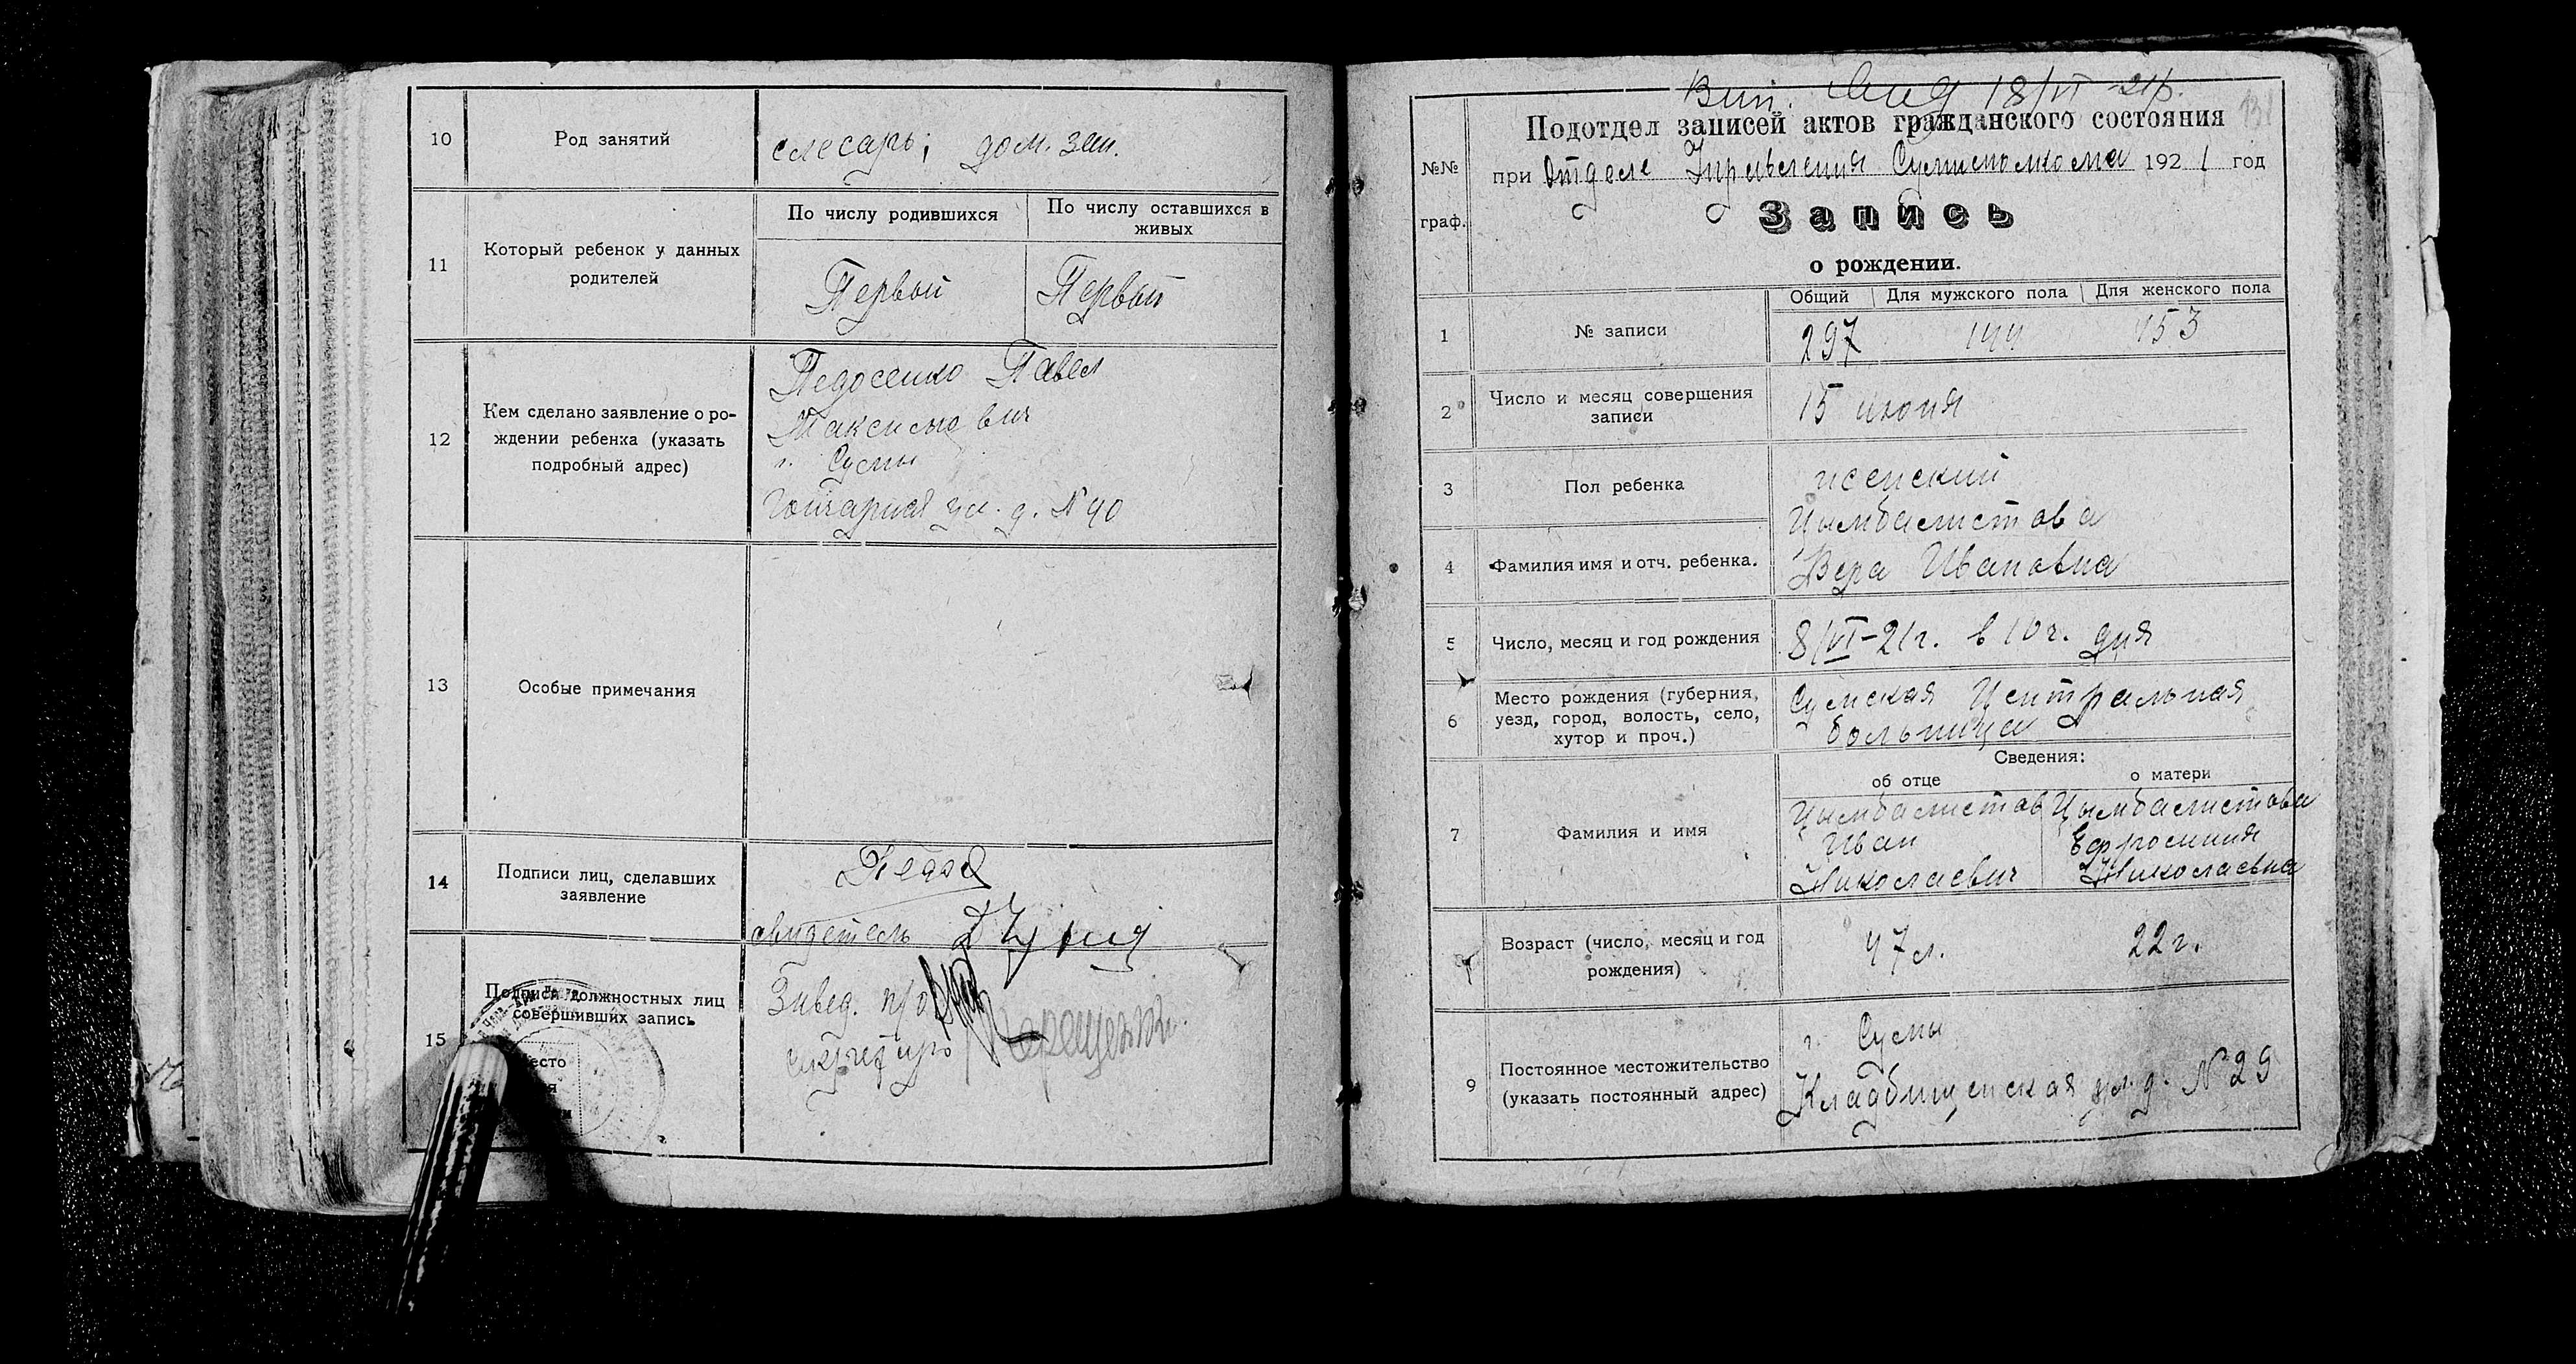 10
Род занятий
слесарь; дом. зан.
11
Который ребенок у данных
родителей
По числу родившихся
По числу оставшихся в
живых
Первый
Первый
12
Кем сделано заявление о ро-
ждении ребенка (указать
подробный адрес)
Павел
Максимович
г. Сумы
Гончарная ул. д. N 40
13
Особые примечания
14
Подписи лиц, сделавших
заявление
свидетель
15
Подписи должностных лиц
совершивших запись
Завед. п/о
секретарь
18/VI 21г.
131
№№
граф.
Подотдел записей актов гражданского состояния
при Отделе Управления Сумисполкома 1921 год
Запись
о рождении.
1
№ записи
Общий
Для мужского пола
Для женского пола
297
144
153
2
Число и месяц совершения
записи
15 июня
3
Пол ребенка
женский
4
Фамилия имя и отч. ребенка.
Цымбалистова
Вера Ивановна
5
Число, месяц и год рождения
8/VI-21г. в 10 ч. дня
6
Место рождения (губерния,
уезд, город, волость, село,
хутор и проч.)
Сумская Центральная
больница
7
Фамилия и имя
Сведения:
об отце
о матери
Цымбалистов
Иван
Николаевич
Цымбалистова
Ефросиния
Николаевна
Возраст (число, месяц и год
рождения)
47 л.
22 г.
9
Постоянное местожительство
(указать постоянный адрес)
г. Сумы
Кладбищенская ул. д. N 29